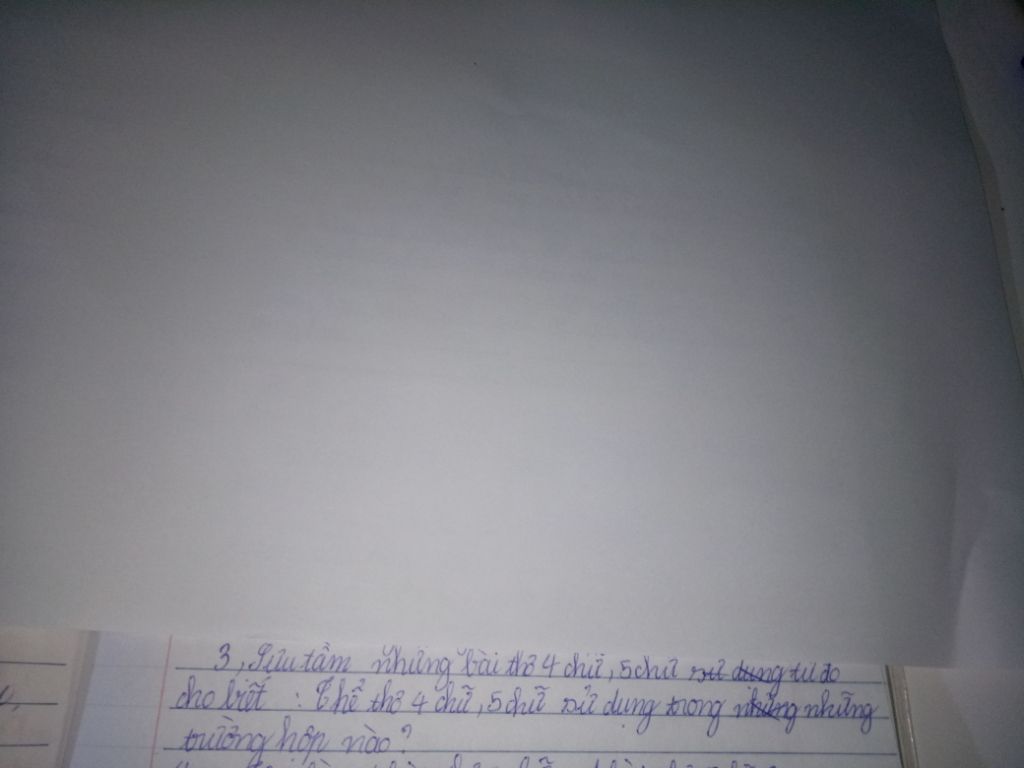 3, Sưu tầm những bài thơ 4 chữ, 5 chữ sử dụng từ đó
cho biết : Thể thơ 4 chữ, 5 chữ sử dụng trong những những
trường hợp nào?